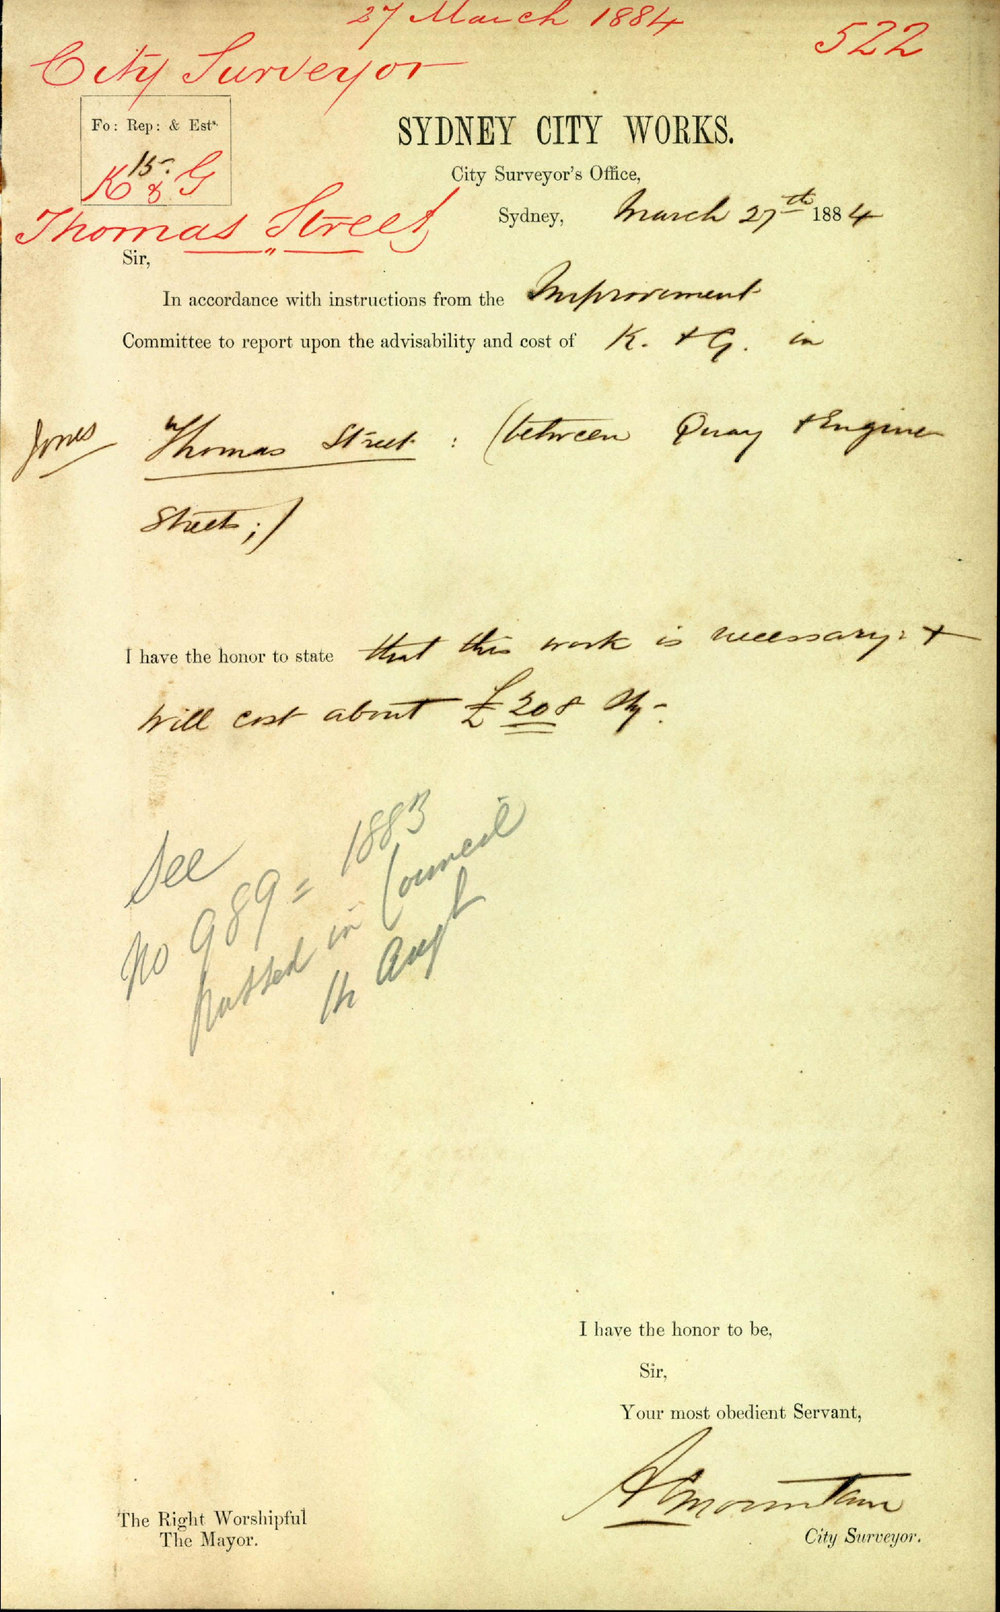 27 March 1884
522
City Surveyor
Fo: Rep: & Ests.
15.
K & G
Thomas Street
SYDNEY CITY WORKS.
City Surveyor's Office,
Sydney, March 27th 1884
Sir,
In accordance with instructions from the Improvement
Committee to report upon the advisability and cost of K. + G. in
Jones
Thomas Street : (between Quay + Engine
Street;)
I have the honor to state that this work is necessary: +
will cost about £208
See
No 989 = 1883
passed in Council
14 Augt
I have the honor to be,
Sir,
Your most obedient Servant,
A C Mountain
City Surveyor.
The Right Worshipful
The Mayor.